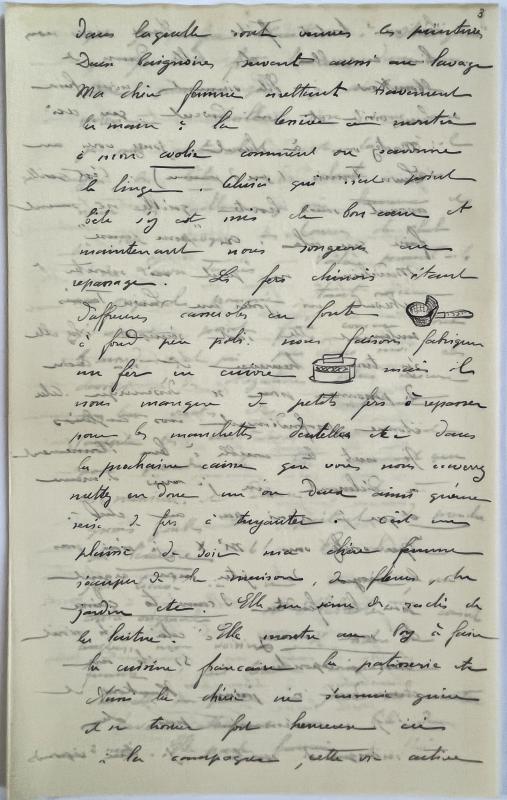 3
dans laquelle sont venues les peintures
Deux baignoires servant aussi au lavage
Ma chère femme mettant bravement
la main à la lessive a montré
à mon comment on savonne
le linge. Celui-ci qui n'est point
bête s'y est mis de bon cœur et
maintenant nous songeons au
repassage. Les fers chinois étant
d'affreuses casseroles en fonte
à fond peu poli. nous faisons fabriquer
un fer en cuivre mais il
nous manque de petits fers à repasser
pour les manchettes dentelles etc dans
la prochaine caisse que vous nous enverrez
mettez en donc un ou deux ainsi qu'une
série de fers à tuyauter. c'est un
plaisir de voir ma chère femme
s'occuper de la maison, de fleurs, du
jardin etc. Elle sème des radis de
la laitue. Elle montre au boy à faire
la cuisine française la patisserie etc
Aussi la chérie ne s'ennuie guère
et se trouve fort heureuse ici
à la campagne, cette vie active